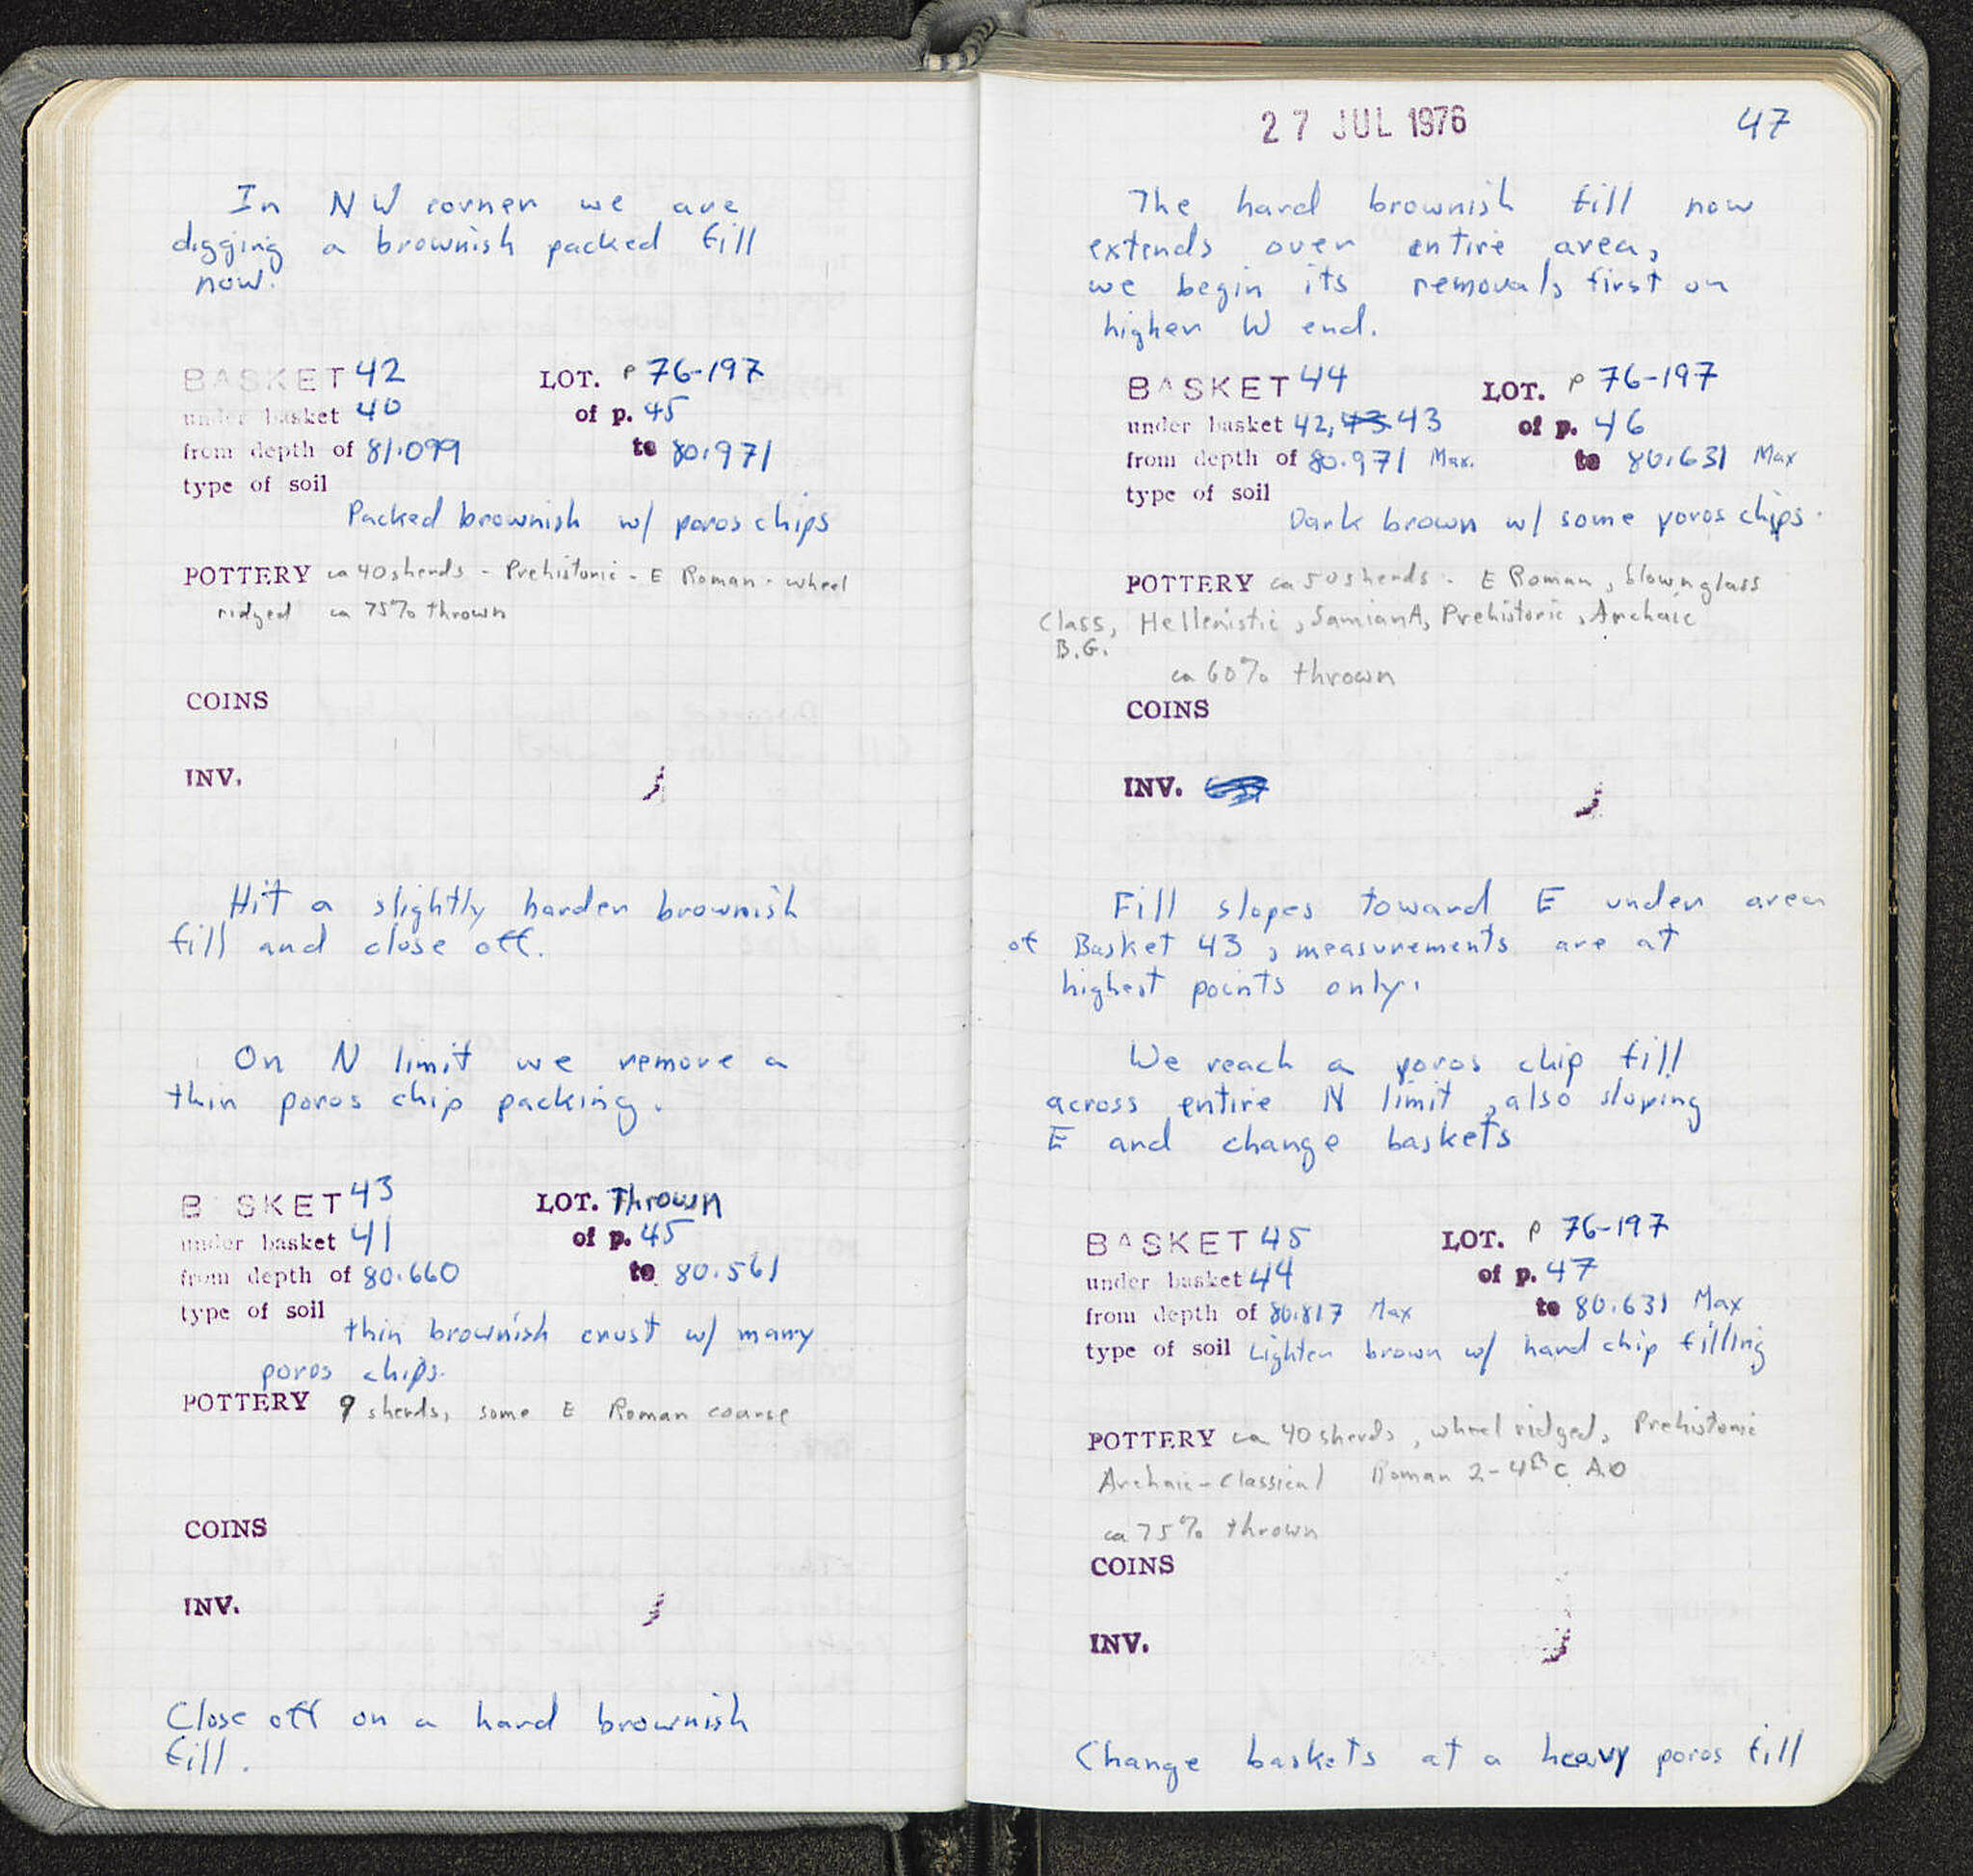 In NW corner we are
digging a brownish packed fill
now.
BASKET 42 LOT. P 76-197
under basket 40 of p. 45
from depth of 81.099 to 80.971
type of soil
Packed brownish w/ poros chips
POTTERY ca 40 sherds - Prehistoric - E Roman - wheel
ridged ca 75% thrown
COINS
INV.
Hit a slightly harder brownish
fill and close off.
On N limit we remove a
thin poros chip packing.
B SKET 43 LOT. Thrown
under basket 41 of p. 45
from depth of 80.660 to 80.561
type of soil
thin brownish crust w/ many
poros chips.
POTTERY 9 sherds, some E Roman coarse
COINS
INV.
Close off on a hard brownish
fill.
27 JUL 1976 47
The hard brownish fill now
extends over entire area,
we begin its removal, first on
higher W end.
BASKET 44 LOT. P 76-197
under basket 42, 43 43 of p. 46
from depth of 80.971 Max. to 80.631 Max
type of soil
Dark brown w/ some poros chips.
POTTERY ca 50 sherds - E Roman, blown glass
Class, Hellenistic, Samian A, Prehistoric, Archaic
B.G.
ca 60% thrown
COINS
INV.
Fill slopes toward E under area
of Basket 43, measurements are at
highest points only.
We reach a poros chip fill
across entire N limit, also sloping
E and change baskets
BASKET 45 LOT. P 76-197
under basket 44 of p. 47
from depth of 80.817 Max to 80.631 Max
type of soil Lighter brown w/ hard chip filling
POTTERY ca 40 sherds, wheel ridged, Prehistoric
Archaic-Classical Roman 2-4th C. AD
ca 75% thrown
COINS
INV.
Change baskets at a heavy poros fill